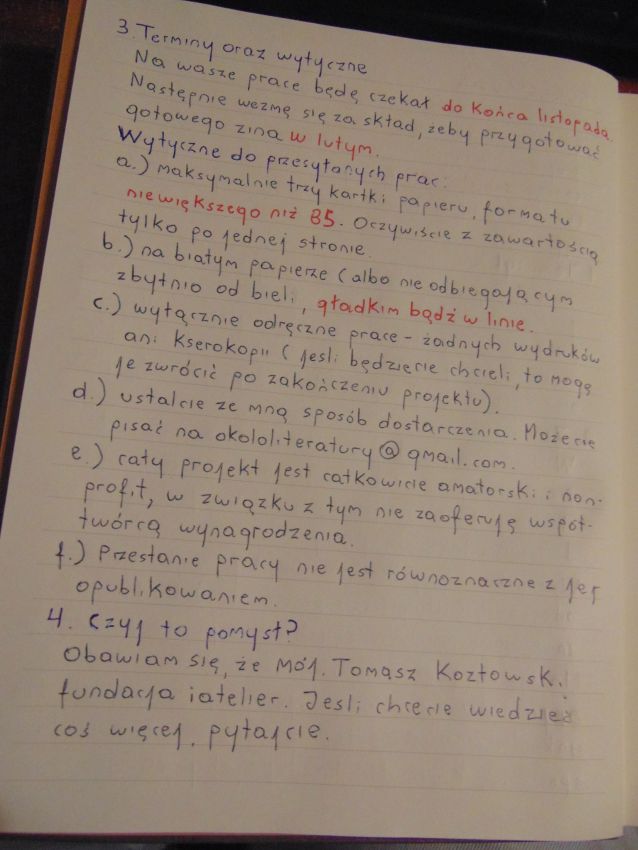 3. Terminy oraz wytyczne
Na wasze prace będę czekał do końca listopada.
Następnie wezmę się za skład, żeby przygotować
gotowego zina w lutym.
Wytyczne do przesyłanych prac:
a.) maksymalnie trzy kartki papieru, formatu
niewiększego niż B5. Oczywiście z zawartością
tylko po jednej stronie.
b.) na białym papierze (albo nie odbiegającym
zbytnio od bieli, gładkim bądź w linie.
c.) wyłącznie odręczne prace - żadnych wydruków
ani kserokopii (jeśli będziecie chcieli, to mogę
je zwrócić po zakończeniu projektu).
d.) ustalcie ze mną sposób dostarczenia. Możecie
pisać na okololiteratury@gmail.com.
e.) cały projekt jest całkowicie amatorski i non-
profit, w związku z tym nie zaoferuję współ-
twórcą wynagrodzenia.
f.) Przesłanie pracy nie jest równoznaczne z jej
opublikowaniem.
4. Czyj to pomysł?
Obawiam się, że mój. Tomasz Kozłowski.
fundacja iatelier. Jeśli chcecie wiedzieć
coś więcej, pytajcie.